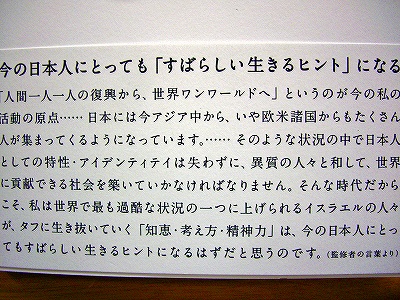 今の日本人にとっても「すばらしい生きるヒント」になる
「人間一人一人の復興から、世界ワンワールドへ」というのが今の私の
活動の原点…… 日本には今アジア中から、いや欧米諸国からもたくさん
人が集まってくるようになっています。…… そのような状況の中で日本人
としての特性・アイデンティテイは失わずに、異質の人々と和して、世界
に貢献できる社会を築いていかなければなりません。そんな時代だから
こそ、私は世界で最も過酷な状況の一つに上げられるイスラエルの人々
が、タフに生き抜いていく「知恵・考え方・精神力」は、今の日本人にとっ
てもすばらしい生きるヒントになるはずだと思うのです。（監修者の言葉より）